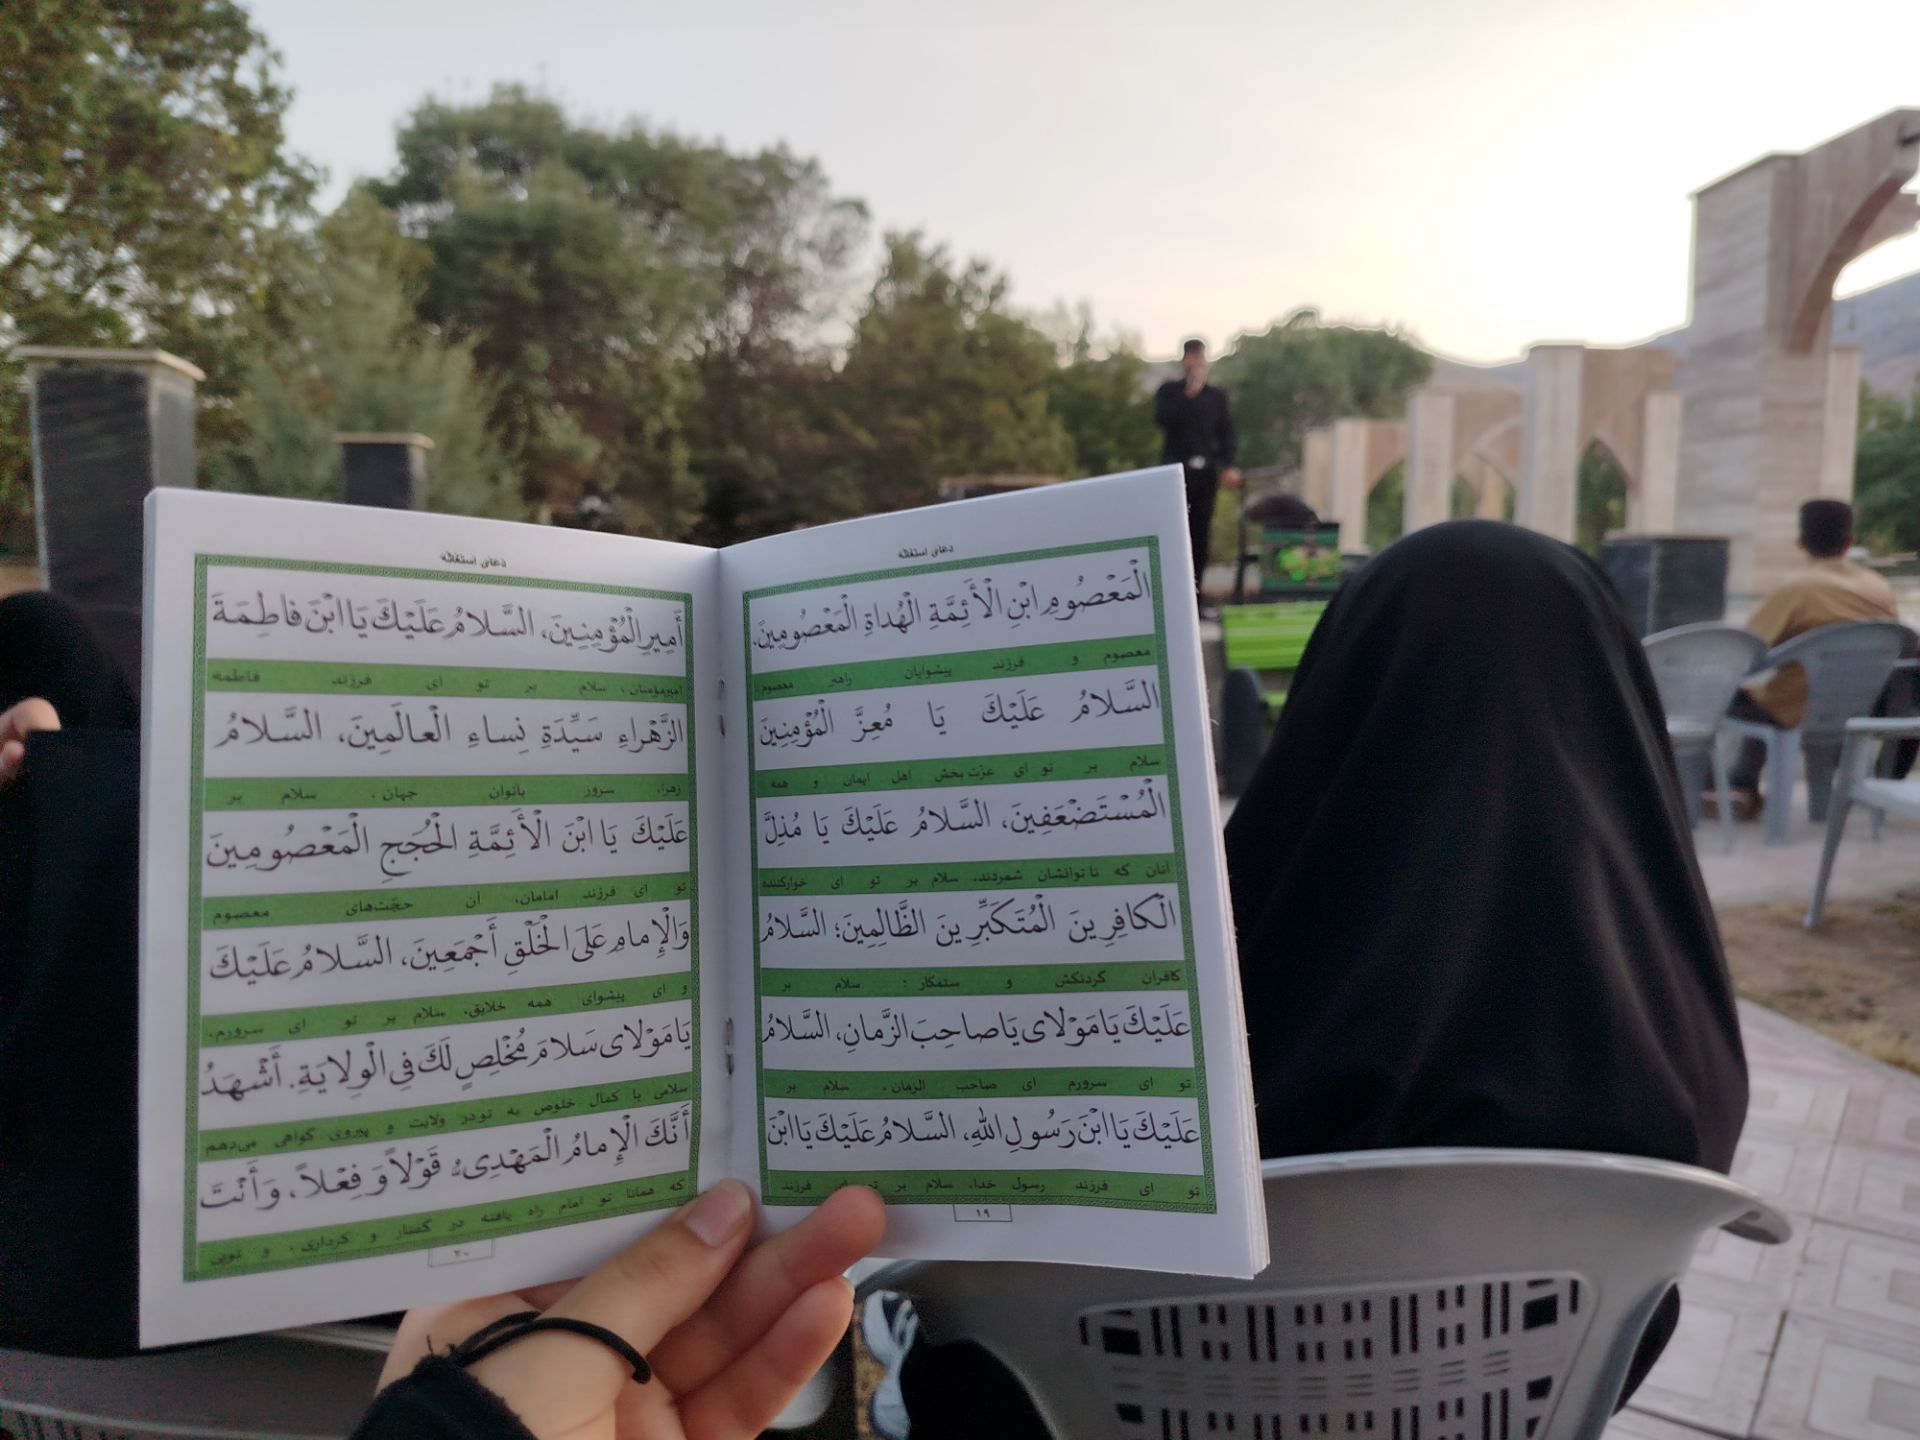 دعای استغاثه
الْمَعْصُومِ ابْنِ الْأَئِمَّةِ الْهُداةِ الْمَعْصُومِینَ.
معصوم و فرزند پیشوایان راهبر معصوم
السَّلامُ عَلَیْكَ یَا مُعِزَّ الْمُؤْمِنِینَ
سلام بر تو ای عزت‌بخش اهل ایمان و همه
الْمُسْتَضْعَفِینَ، السَّلامُ عَلَیْكَ یَا مُذِلَّ
آنان که ناتوانشان شمردند. سلام بر تو ای خوارکننده
الْكافِرِینَ الْمُتَكَبِّرِینَ الظَّالِمِینَ؛ السَّلامُ
کافران گردنکش و ستمکار : سلام بر
عَلَیْكَ یَا مَوْلای یَا صاحِبَ الزَّمانِ، السَّلامُ
تو ای سرورم ای صاحب الزمان. سلام بر
عَلَیْكَ یَا ابْنَ رَسُولِ اللهِ، السَّلامُ عَلَیْكَ یَا ابْنَ
تو ای فرزند رسول خدا. سلام بر تو ای فرزند
۱۹
دعای استغاثه
أَمِیرِ الْمُؤْمِنِینَ، السَّلامُ عَلَیْكَ یَا ابْنَ فاطِمَةَ
امیرمؤمنان، سلام بر تو ای فرزند فاطمه
الزَّهْراءِ سَیِّدَةِ نِساءِ الْعالَمِینَ، السَّلامُ
زهرا، سرور بانوان جهان. سلام بر
عَلَیْكَ یَا ابْنَ الْأَئِمَّةِ الْحُجَجِ الْمَعْصُومِینَ
تو ای فرزند امامان، آن حجّت‌های معصوم
وَالْإِمامِ عَلَی الْخَلْقِ أَجْمَعِینَ، السَّلامُ عَلَیْكَ
و ای پیشوای همه خلایق. سلام بر تو ای سرورم،
یَا مَوْلای سَلامَ مُخْلِصٍ لَكَ فِی الْوِلایَةِ. أَشْهَدُ
سلامی با کمال خلوص به تو در ولایت و پیروی گواهی می‌دهم
أَنَّكَ الْإِمامُ الْمَهْدِی، قَوْلاً وَ فِعْلاً، وَ أَنْتَ
که همانا تو امام راه یافته در گفتار و کرداری. و تویی
۲۰